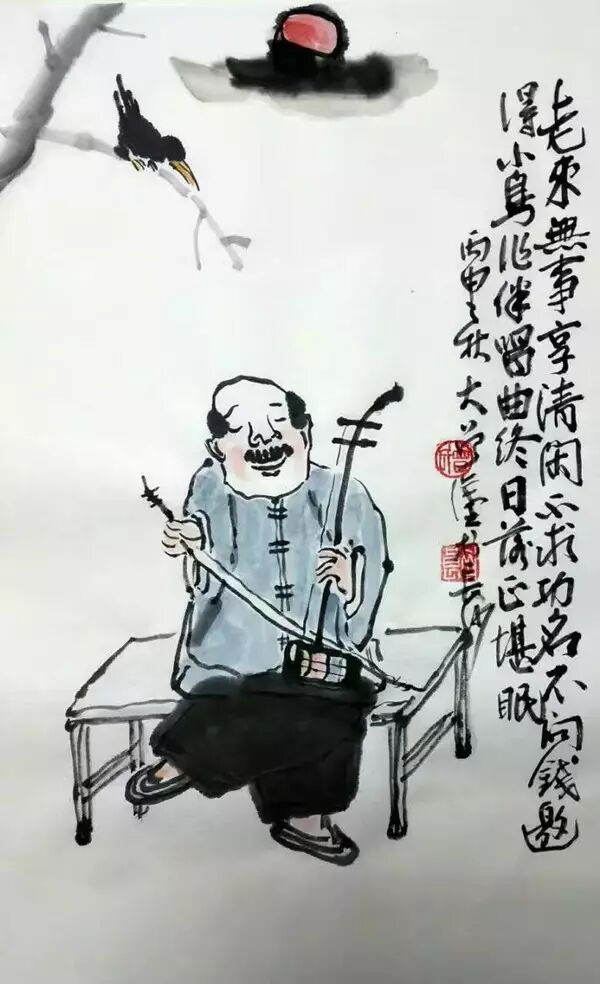 老來無事享清闲不求功名不问錢邀
得小鳥作伴唱曲終日落正堪眠
丙申之秋大